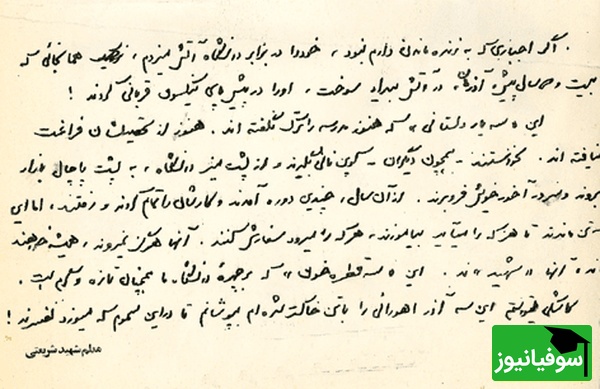 . اگر اجباری که به زنده ماندن دارم نبود، خود را در برابر دانشگاه آتش میزدم، همانجائی که
بیست و دو سال پیش، آذرمان، در آتش بیداد سوخت، او را در پیش پای نیکسون قربانی کردند!
این «سه یار دبستانی» که هنوز مدرسه را ترک نگفته اند. هنوز از تحصیلشان فراغت
نیافته اند. نخواستند - همچون دیگران - کوپن نانی بگیرند و از پشت میز دانشگاه، به پشت پاچال بازار
بروند و سر در آخور خویش فرو برند. از آن سال، چندین دوره آمدند و کارشان را تمام کردند و رفتند، اما این
سه تن ماندند تا هر که را میآید بیاموزند، هر که را میرود سفارش کنند. آنها هرگز نمیروند، همیشه خواهند
ماند آنها «شهید» ند. این «سه قطره خون» که بر چهره دانشگاه ما همچنان تازه و گرم است.
کاشکی میتوانستم این سه آذر اهورائی را با تن خاکستر شده ام بپوشانم تا در این سموم که میوزد نفسرند!
معلم شهید شریعتی
سوفیانیوز